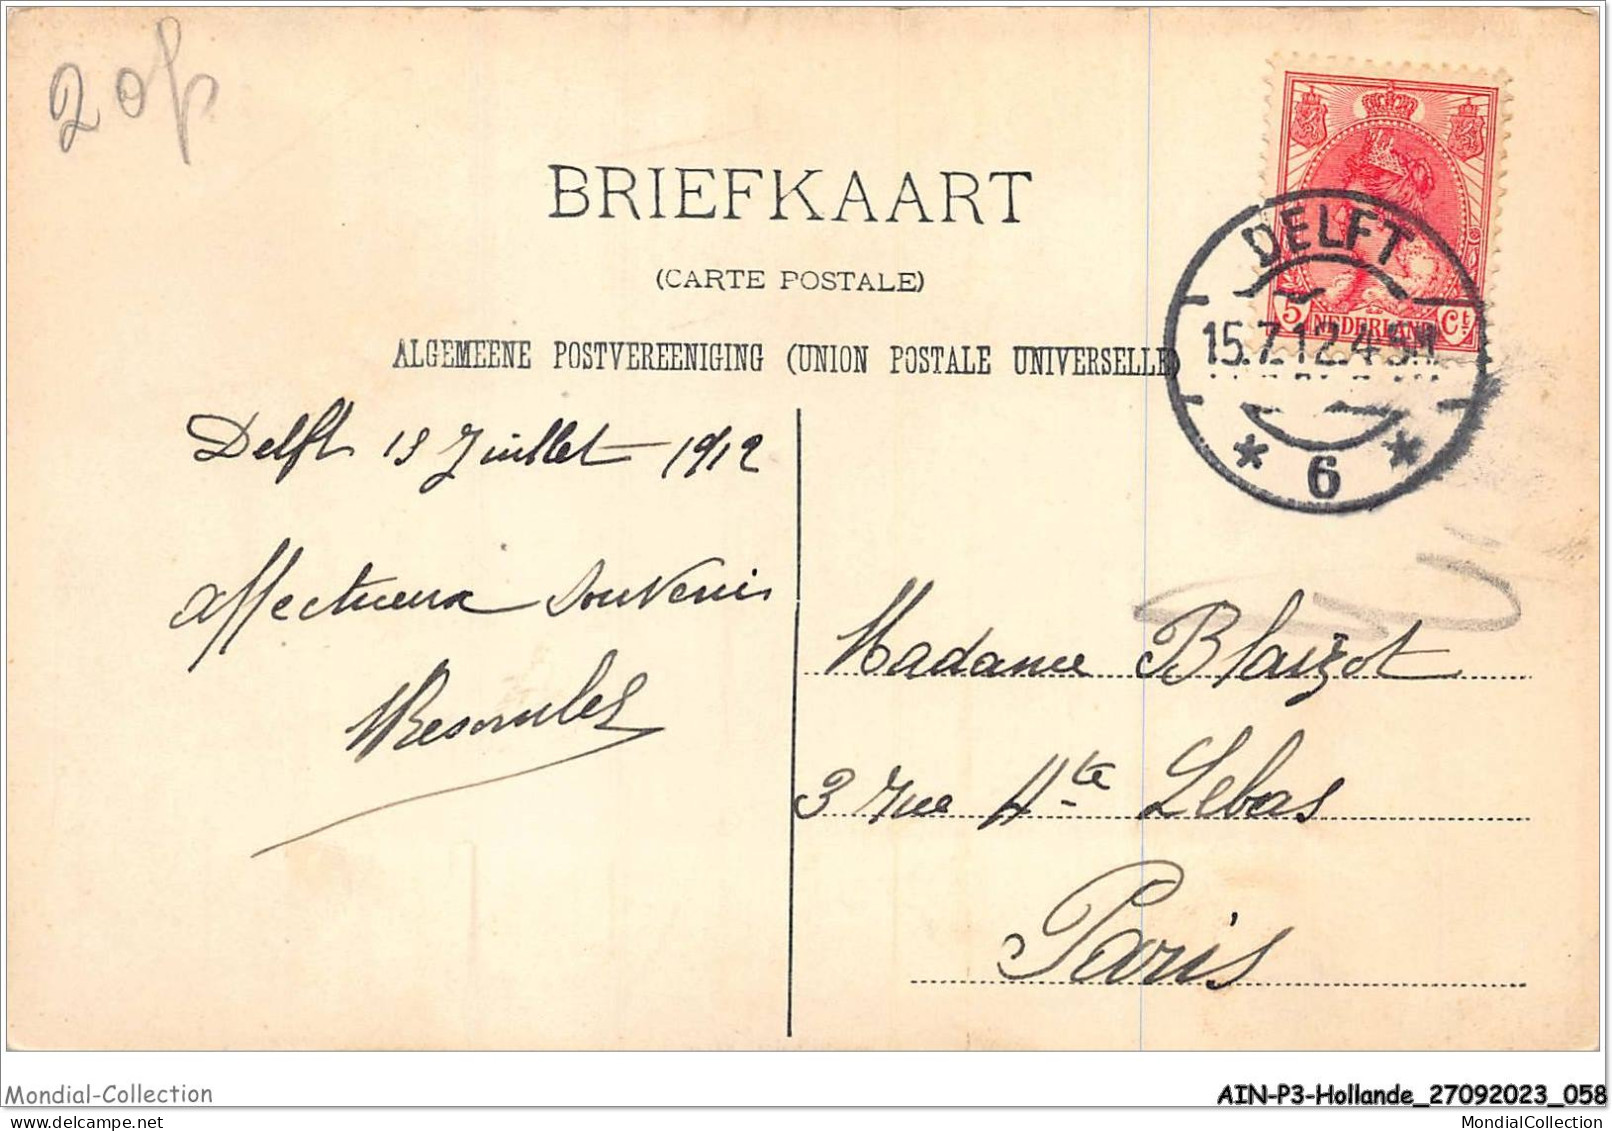 20f
BRIEFKAART
(CARTE POSTALE)
ALGEMEENE POSTVEREENIGING (UNION POSTALE UNIVERSELLE)
5 NEDERLAND Ct
DELFT
15.7.12.4-5N
* 6 *
Delft 15 Juillet 1912
affectueux souvenir
Madame Blaizot
3 rue Hte Lebas
Paris
Mondial-Collection
AIN-P3-Hollande_27092023_058
Mondial-Collection.com
MondialCollection